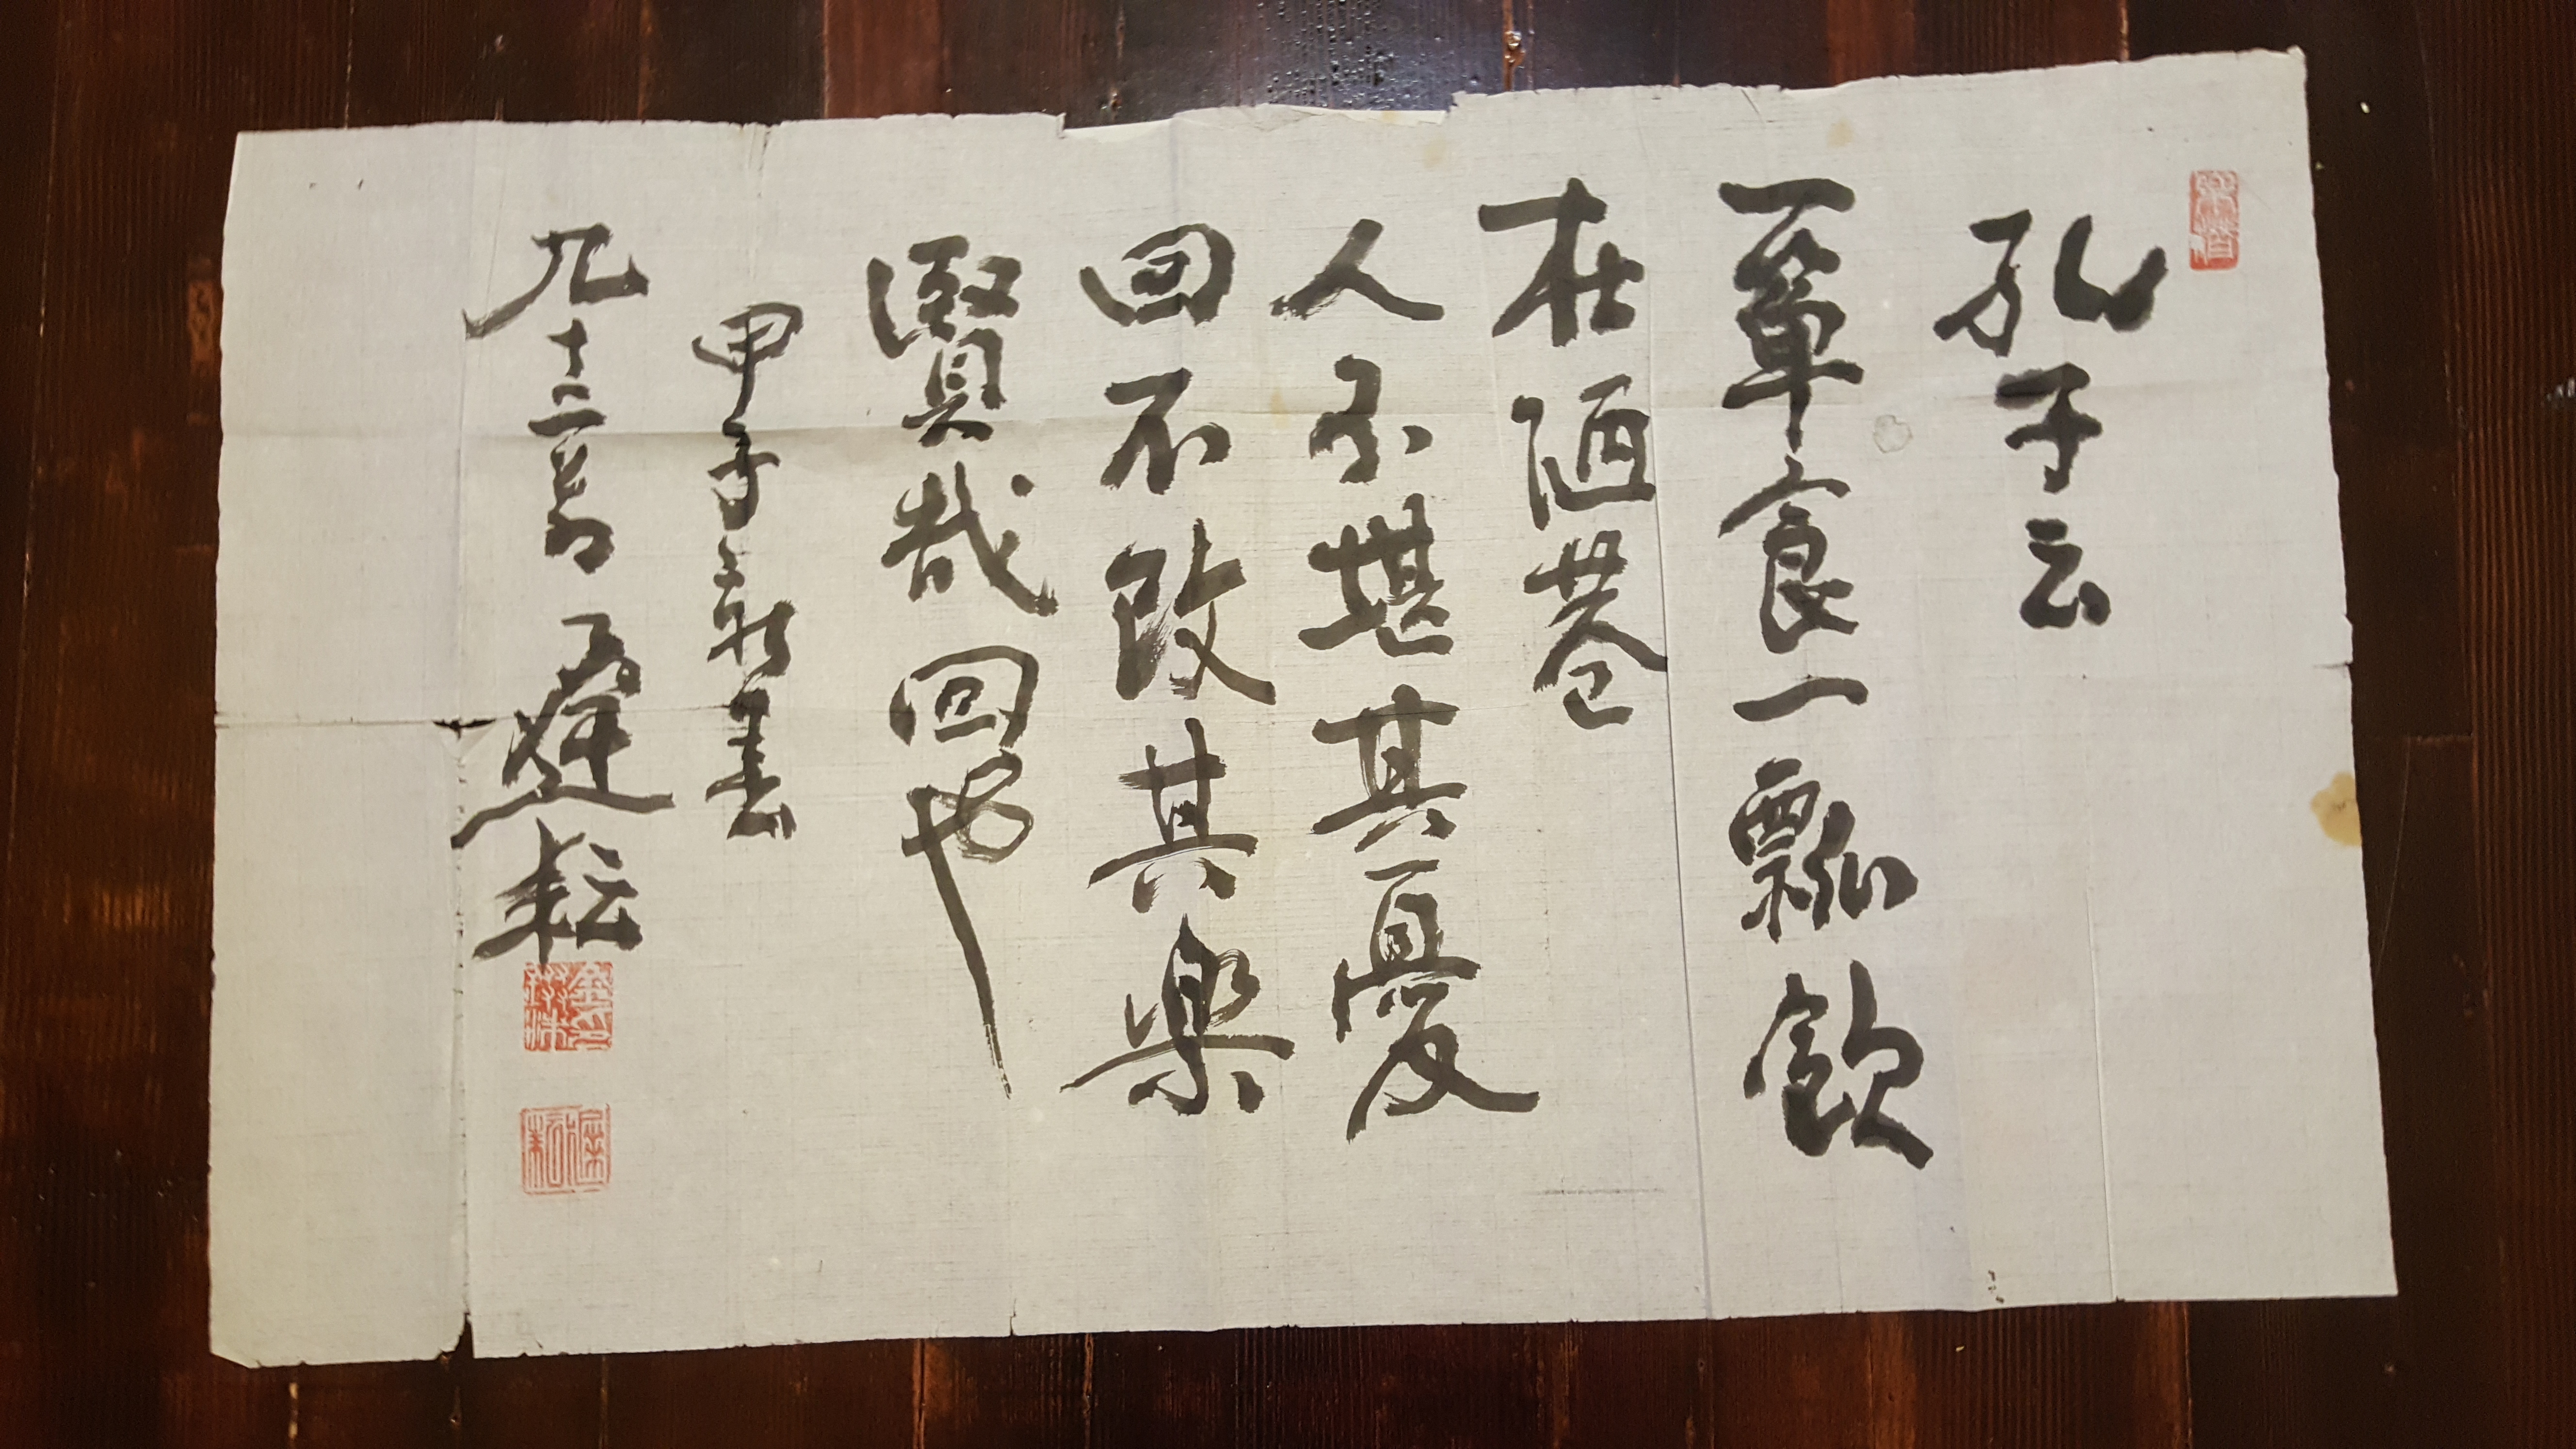 孔子云
一箪食一瓢飲
在陋巷
人不堪其憂
回不改其楽
賢哉回也
甲子 書
九十二翁 耘